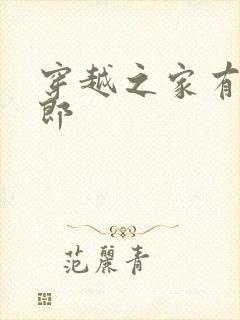 穿越之家有
郎
范丽青